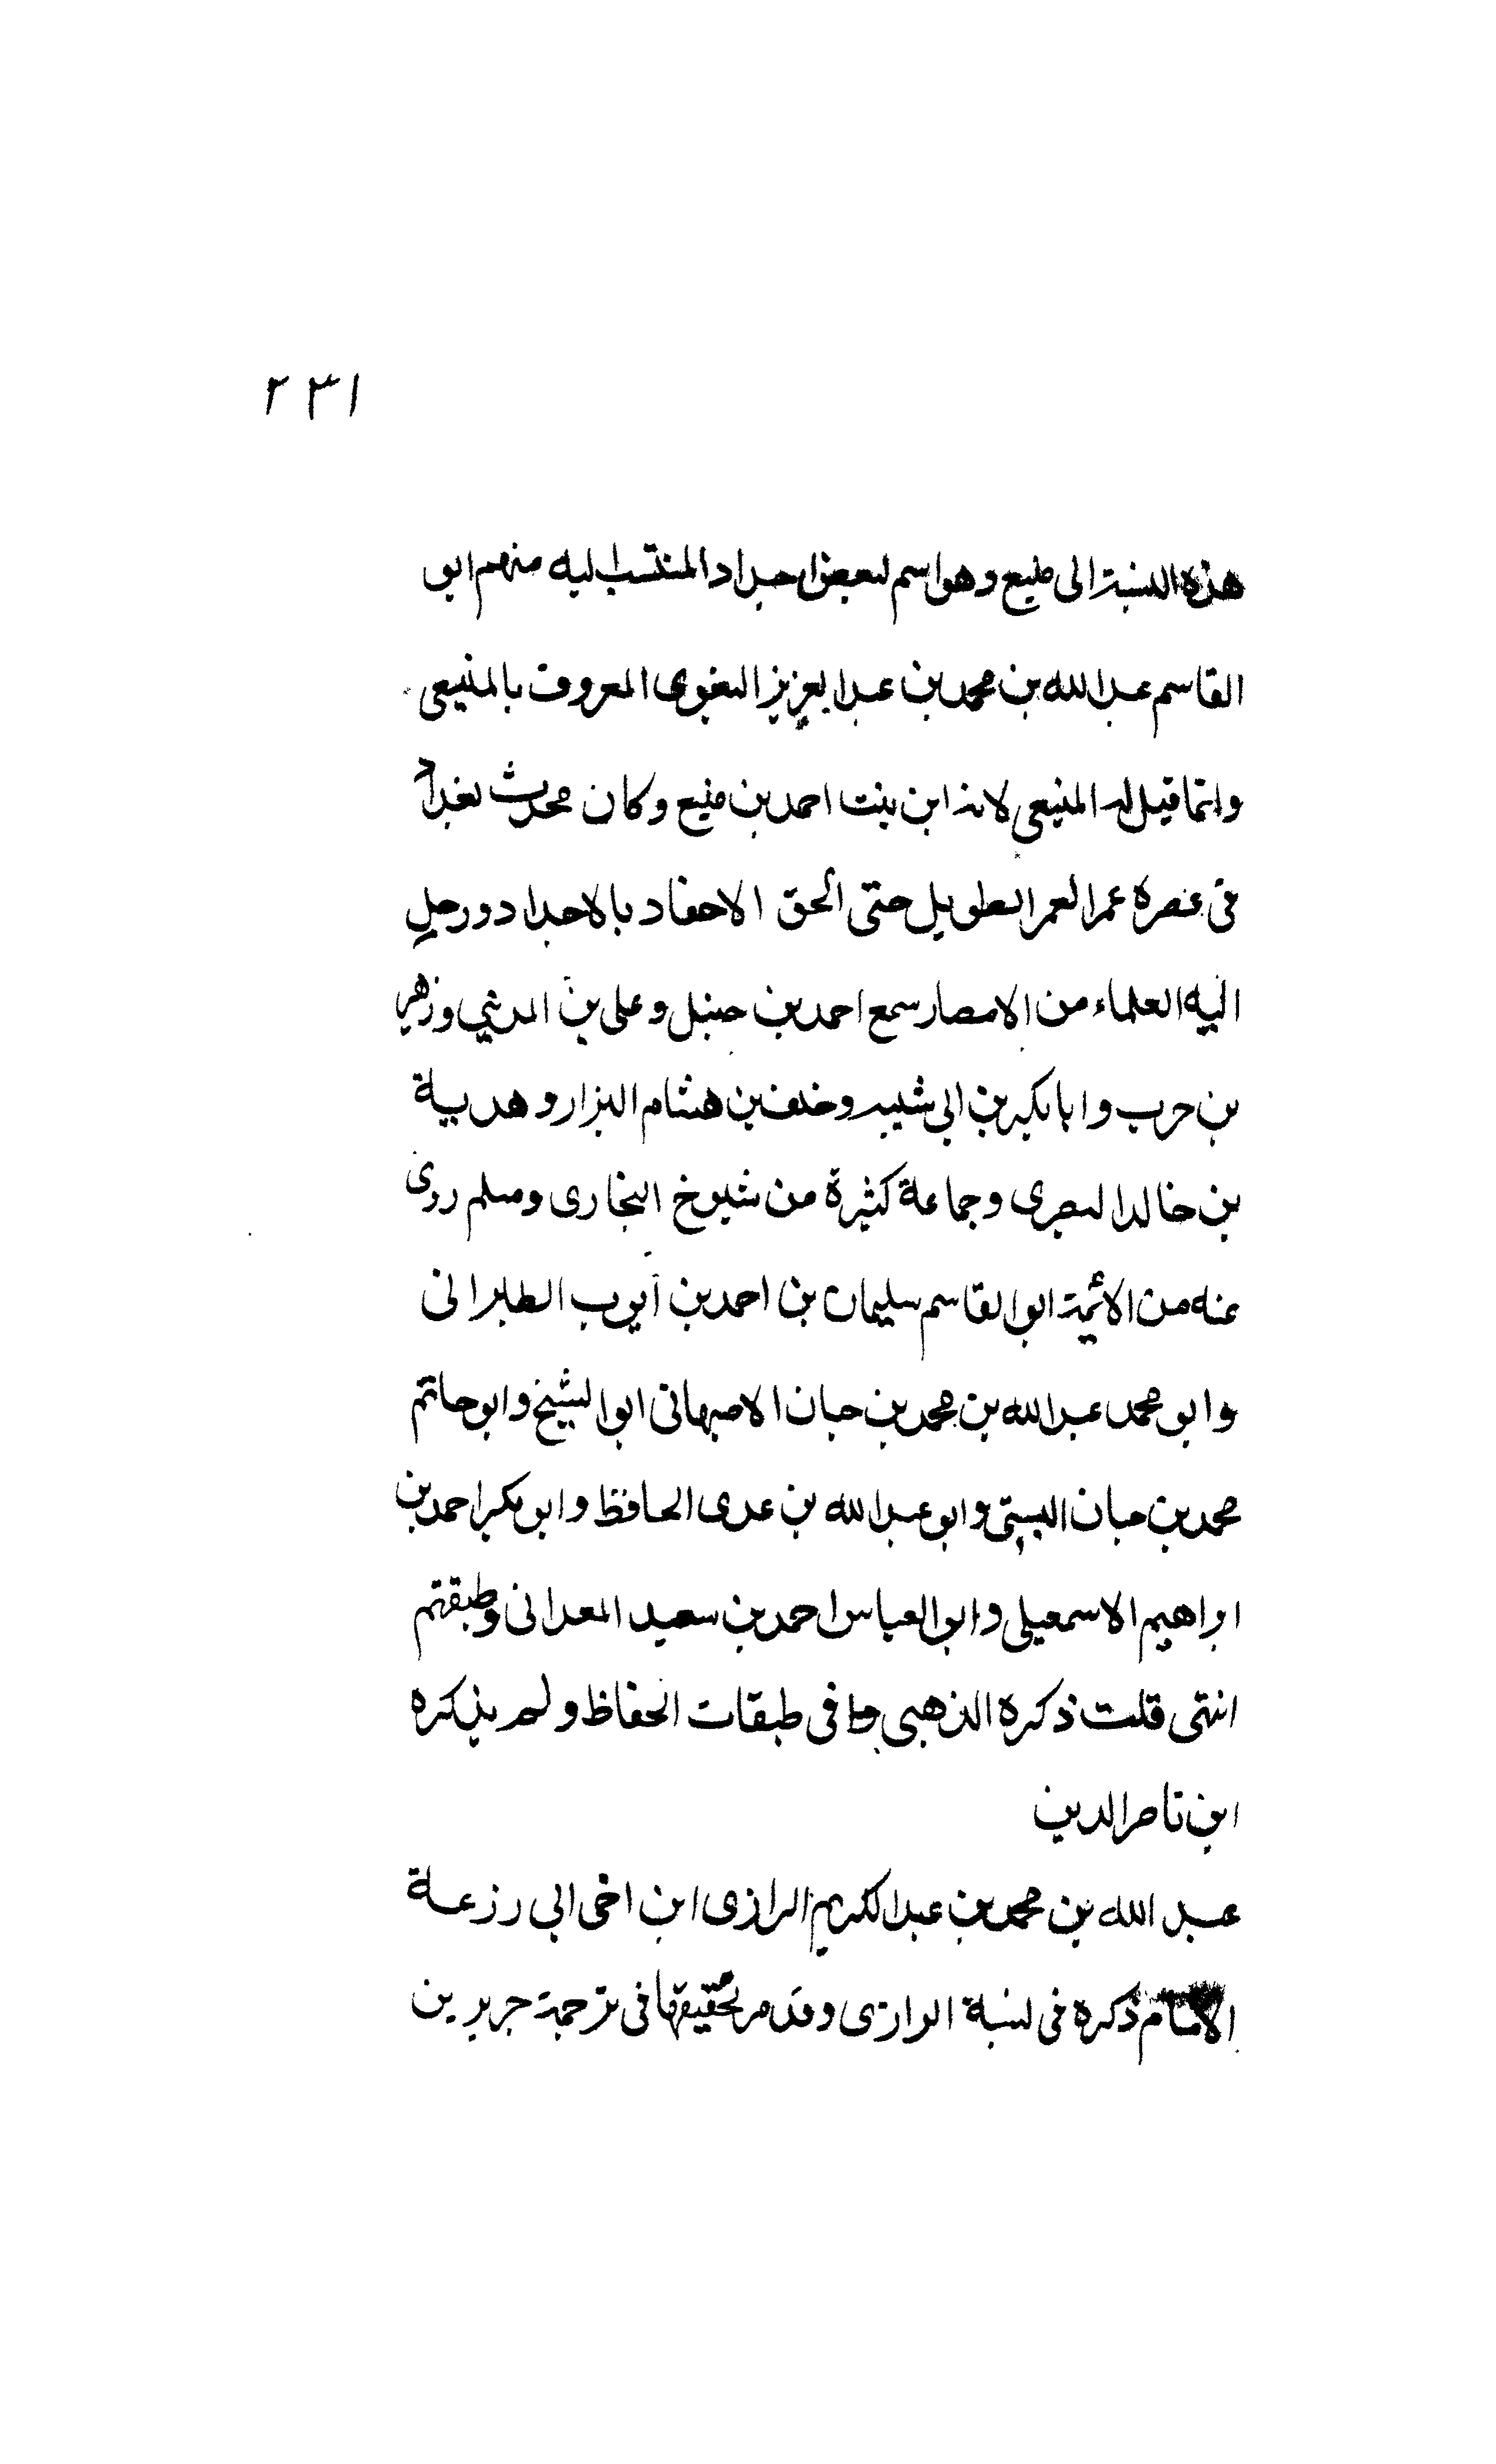 ٢٣١
هذه النسبة الى منيع وهو اسم لبعض اجداد المنتسب اليه منهم ابو
القاسم عبد الله بن محمد بن عبد العزيز البغوى المعروف بالمنيعى
وانما قيل له المنيعى لانه ابن بنت احمد بن منيع وكان محدث بغداد
فى عصره عمر العمر الطويل حتى الحق الاحفاد بالاجداد ورحل
اليه العلماء من الامصار سمع احمد بن حنبل وعلى بن المدينى وزهير
بن حرب وابا بكر بن ابى شيبه وخلف بن هشام البزار وهدبة
بن خالد البصرى وجماعة كثيرة من شيوخ البخارى ومسلم روى
عنه من الائمة ابو القاسم سليمان بن احمد بن أيوب الطبرانى
وابو محمد عبد الله بن محمد بن حبان الاصبهانى ابو الشيخ وابو حاتم
محمد بن حبان البستى وابو عبد الله بن عدى الحافظ وابو بكر احمد بن
ابراهيم الاسمعيلى وابو العباس احمد بن سعيد المعدانى وطبقتهم
انتهى قلت ذكره الذهبى فى طبقات الحفاظ ولم يذكره
ابن ناصر الدين
عبد الله بن محمد بن عبد الكريم الرازى ابن اخى ابى زرعة
الامام ذكره فى نسبة الرازى وقد مر تحقيقها فى ترجمة جرير بن